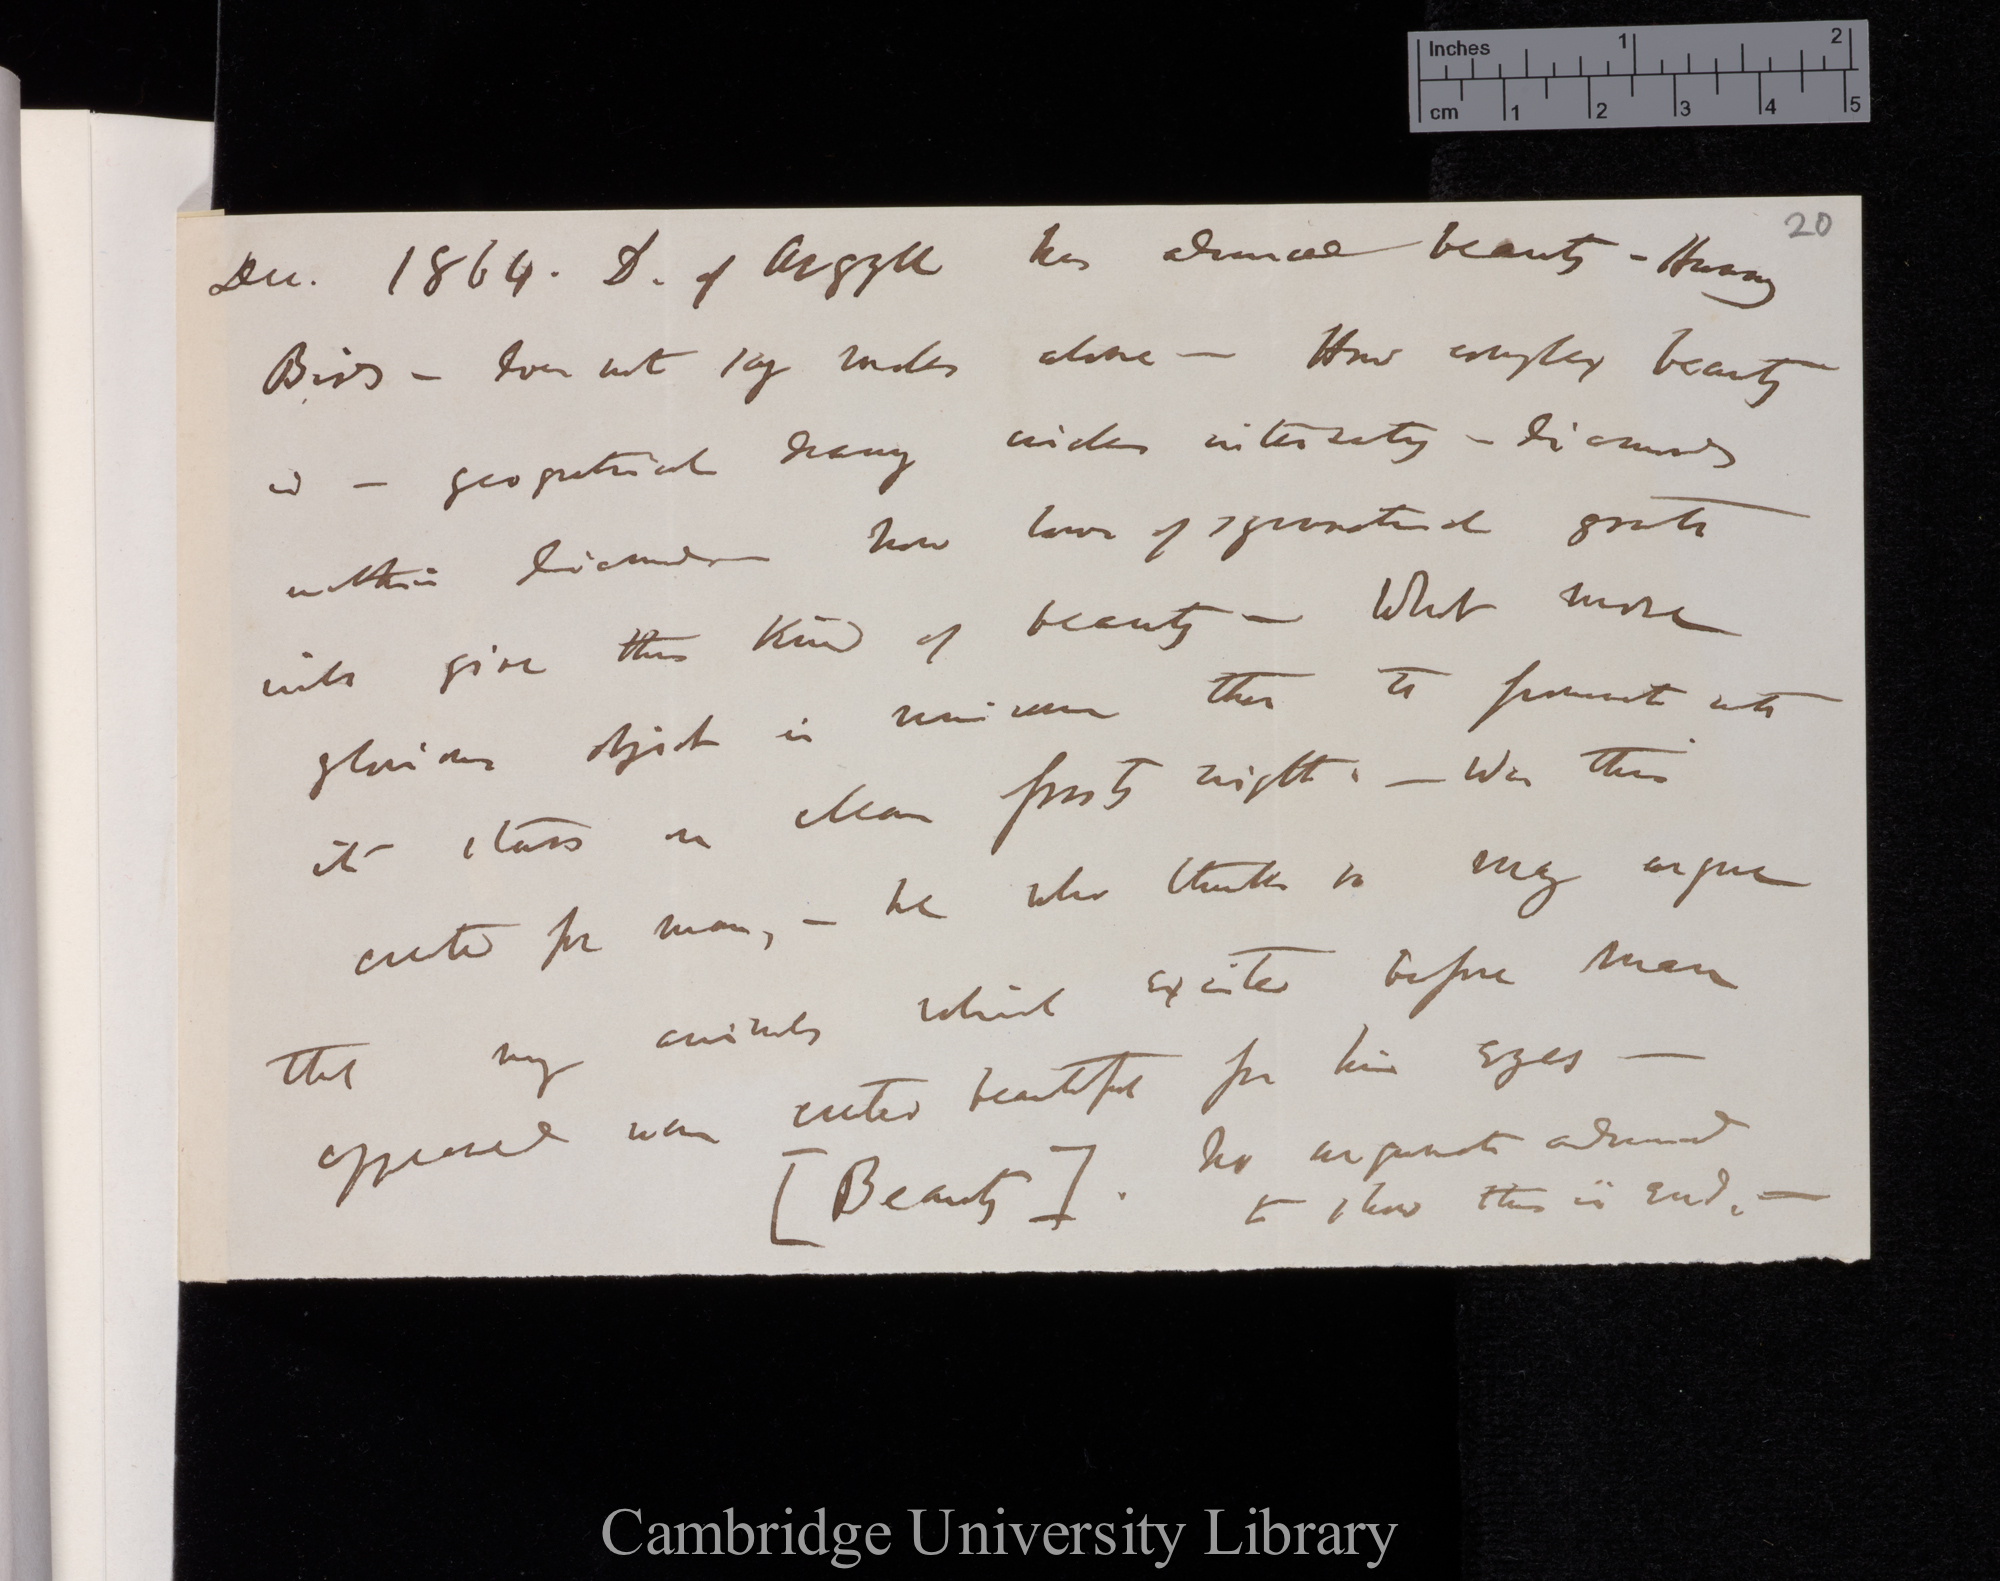 Inches 1 2
cm 1 2 3 4 5
20
Dec. 1864. D. of Argyll has advanced beauty – Humming
Birds – does not say males alone — How complex beauty
is — geometrical circles intersecting – diamonds
within diamonds how laws of symmetrical growth
will give this kind of beauty — What more
glorious object in universe than the firmament with
its stars on clear frosty night. — Was this
created for man, – he who thinks so may argue
that my animals which existed before man
appeared were created beautiful for his eyes —
[Beauty]. No argument advanced
to show this is End. —
Cambridge University Library